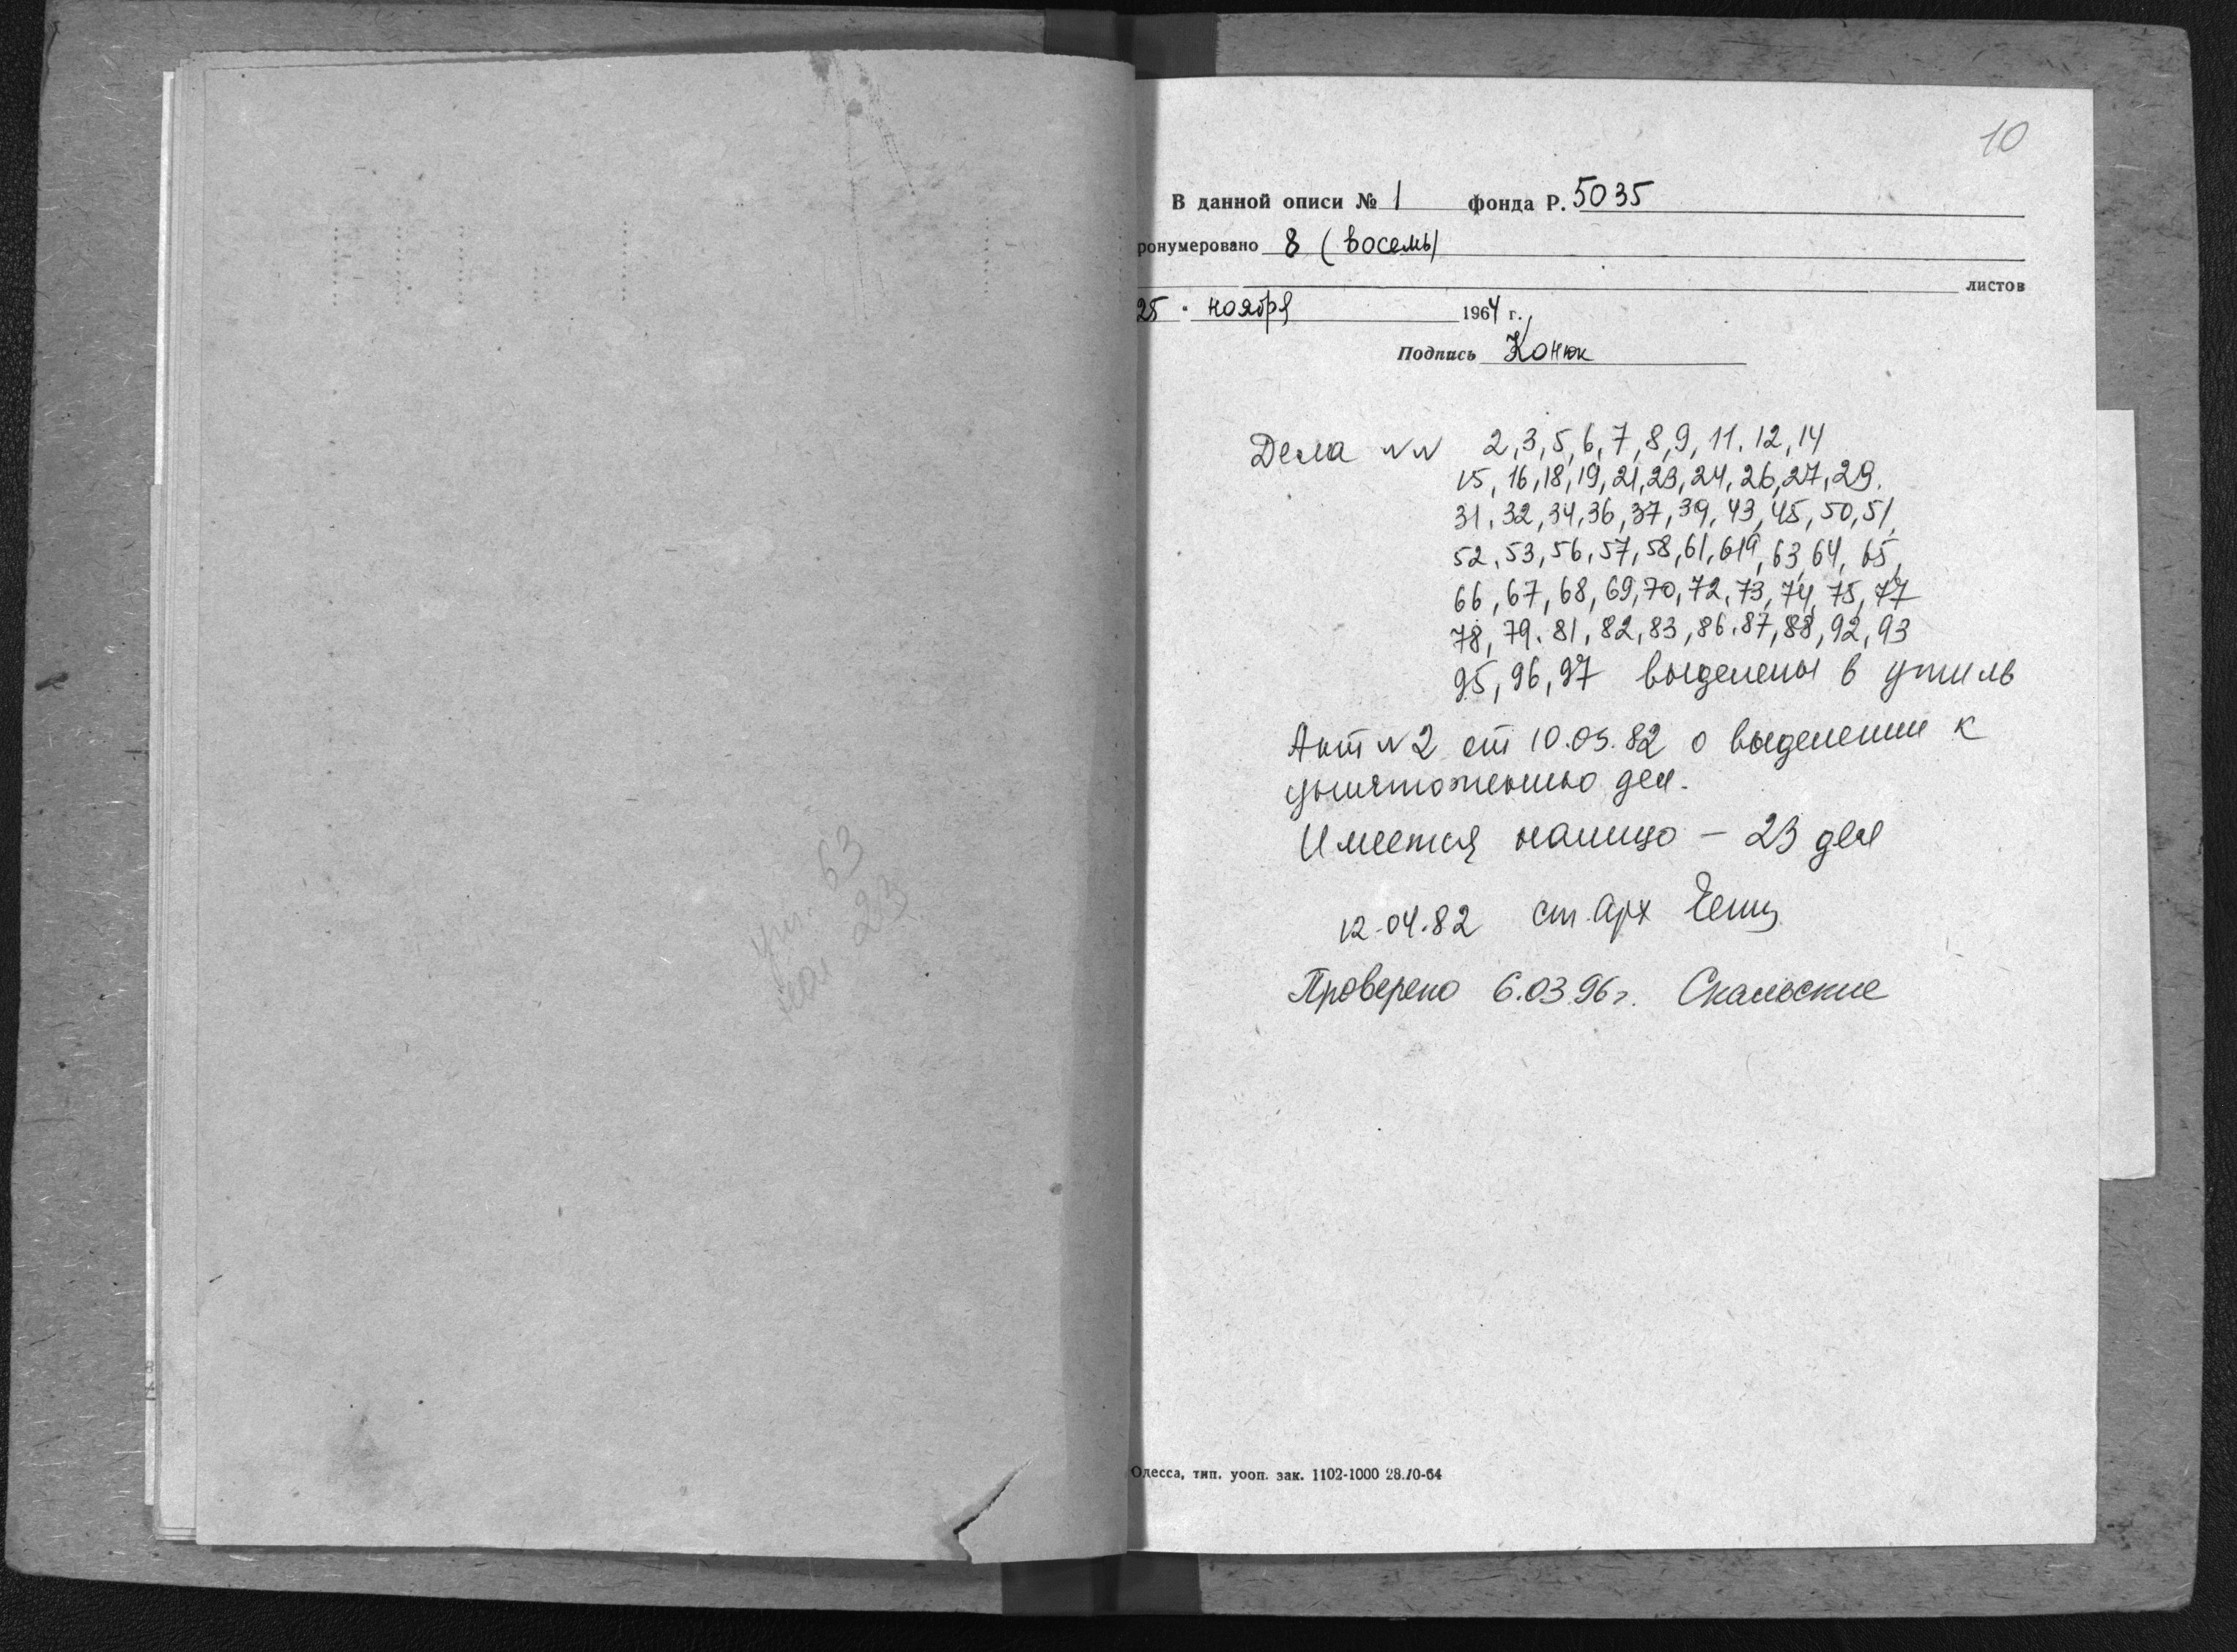 10
В данной описи № 1 фонда Р. 5035
ронумеровано 8 (восемь)
листов
25 " ноября 1964 г.
Подпись Конюк
Дела NN 2,3,5,6,7,8,9,11,12,14
15,16,18,19,21,23,24,26,27,29.
31,32,34,36,37,39,43,45,50,51,
52,53,56,57,58,61,61а,63,64,65,
66,67,68,69,70,72,73,74,75,77
78,79,81,82,83,86,87,88,92,93
95,96,97 выделены в утиль
Акт N2 от 10.03.82 о выделении к
уничтожению дел.
Имеется налицо – 23 дел
12.04.82 ст. арх
Проверено 6.03.96г.
63
нал 23
Одесса, тип. уооп. зак. 1102-1000 28.10-64